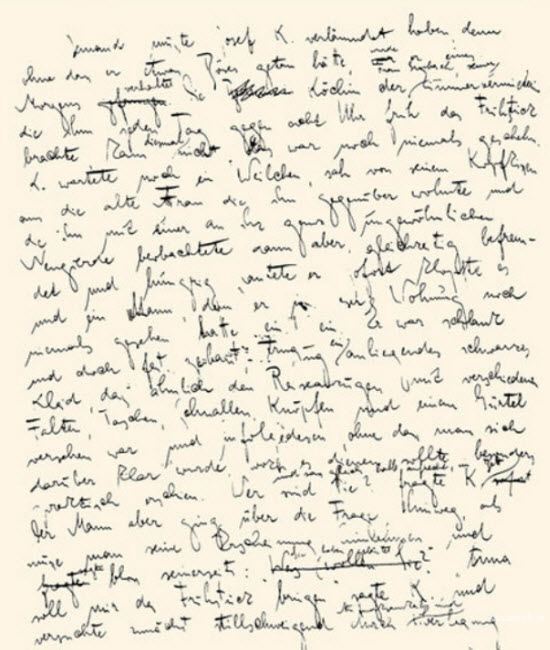 jemand mußte Josef K. verläumdet haben, denn
ohne daß er etwas Böses getan hätte, wurde er eines
Morgens verhaftet. Die Köchin der Zimmervermieterin
die ihm jeden Tag gegen acht Uhr früh das Frühstück
brachte kam diesmal nicht. Das war noch niemals geschehn.
K. wartete noch ein Weilchen, sah von seinem Kopfkissen
aus die alte Frau die ihm gegenüber wohnte und
die ihn mit einer an ihr ganz ungewöhnlichen
Neugierde beobachtete dann aber, gleichzeitig befrem-
det und hungrig, läutete er. Sofort klopfte es
und ein Mann, den er in dieser Wohnung noch
niemals gesehen hatte trat ein. Er war schlank
und doch fest gebaut, er trug ein anliegendes schwarzes
Kleid, das ähnlich den Reiseanzügen mit verschiedenen
Falten, Taschen, Schnallen, Knöpfen und einem Gürtel
versehen war und infolgedessen, ohne daß man sich
darüber klar wurde, wozu es dienen sollte, besonders
praktisch erschien. Wer sind Sie? fragte K.
Der Mann aber ging über die Frage hinweg, als
müsse man seine Erscheinung hinnehmen und
sagte bloß seinerseits: Anna
soll mir das Frühstück bringen sagte K. und
versuchte zunächst stillschweigend durch Überlegung